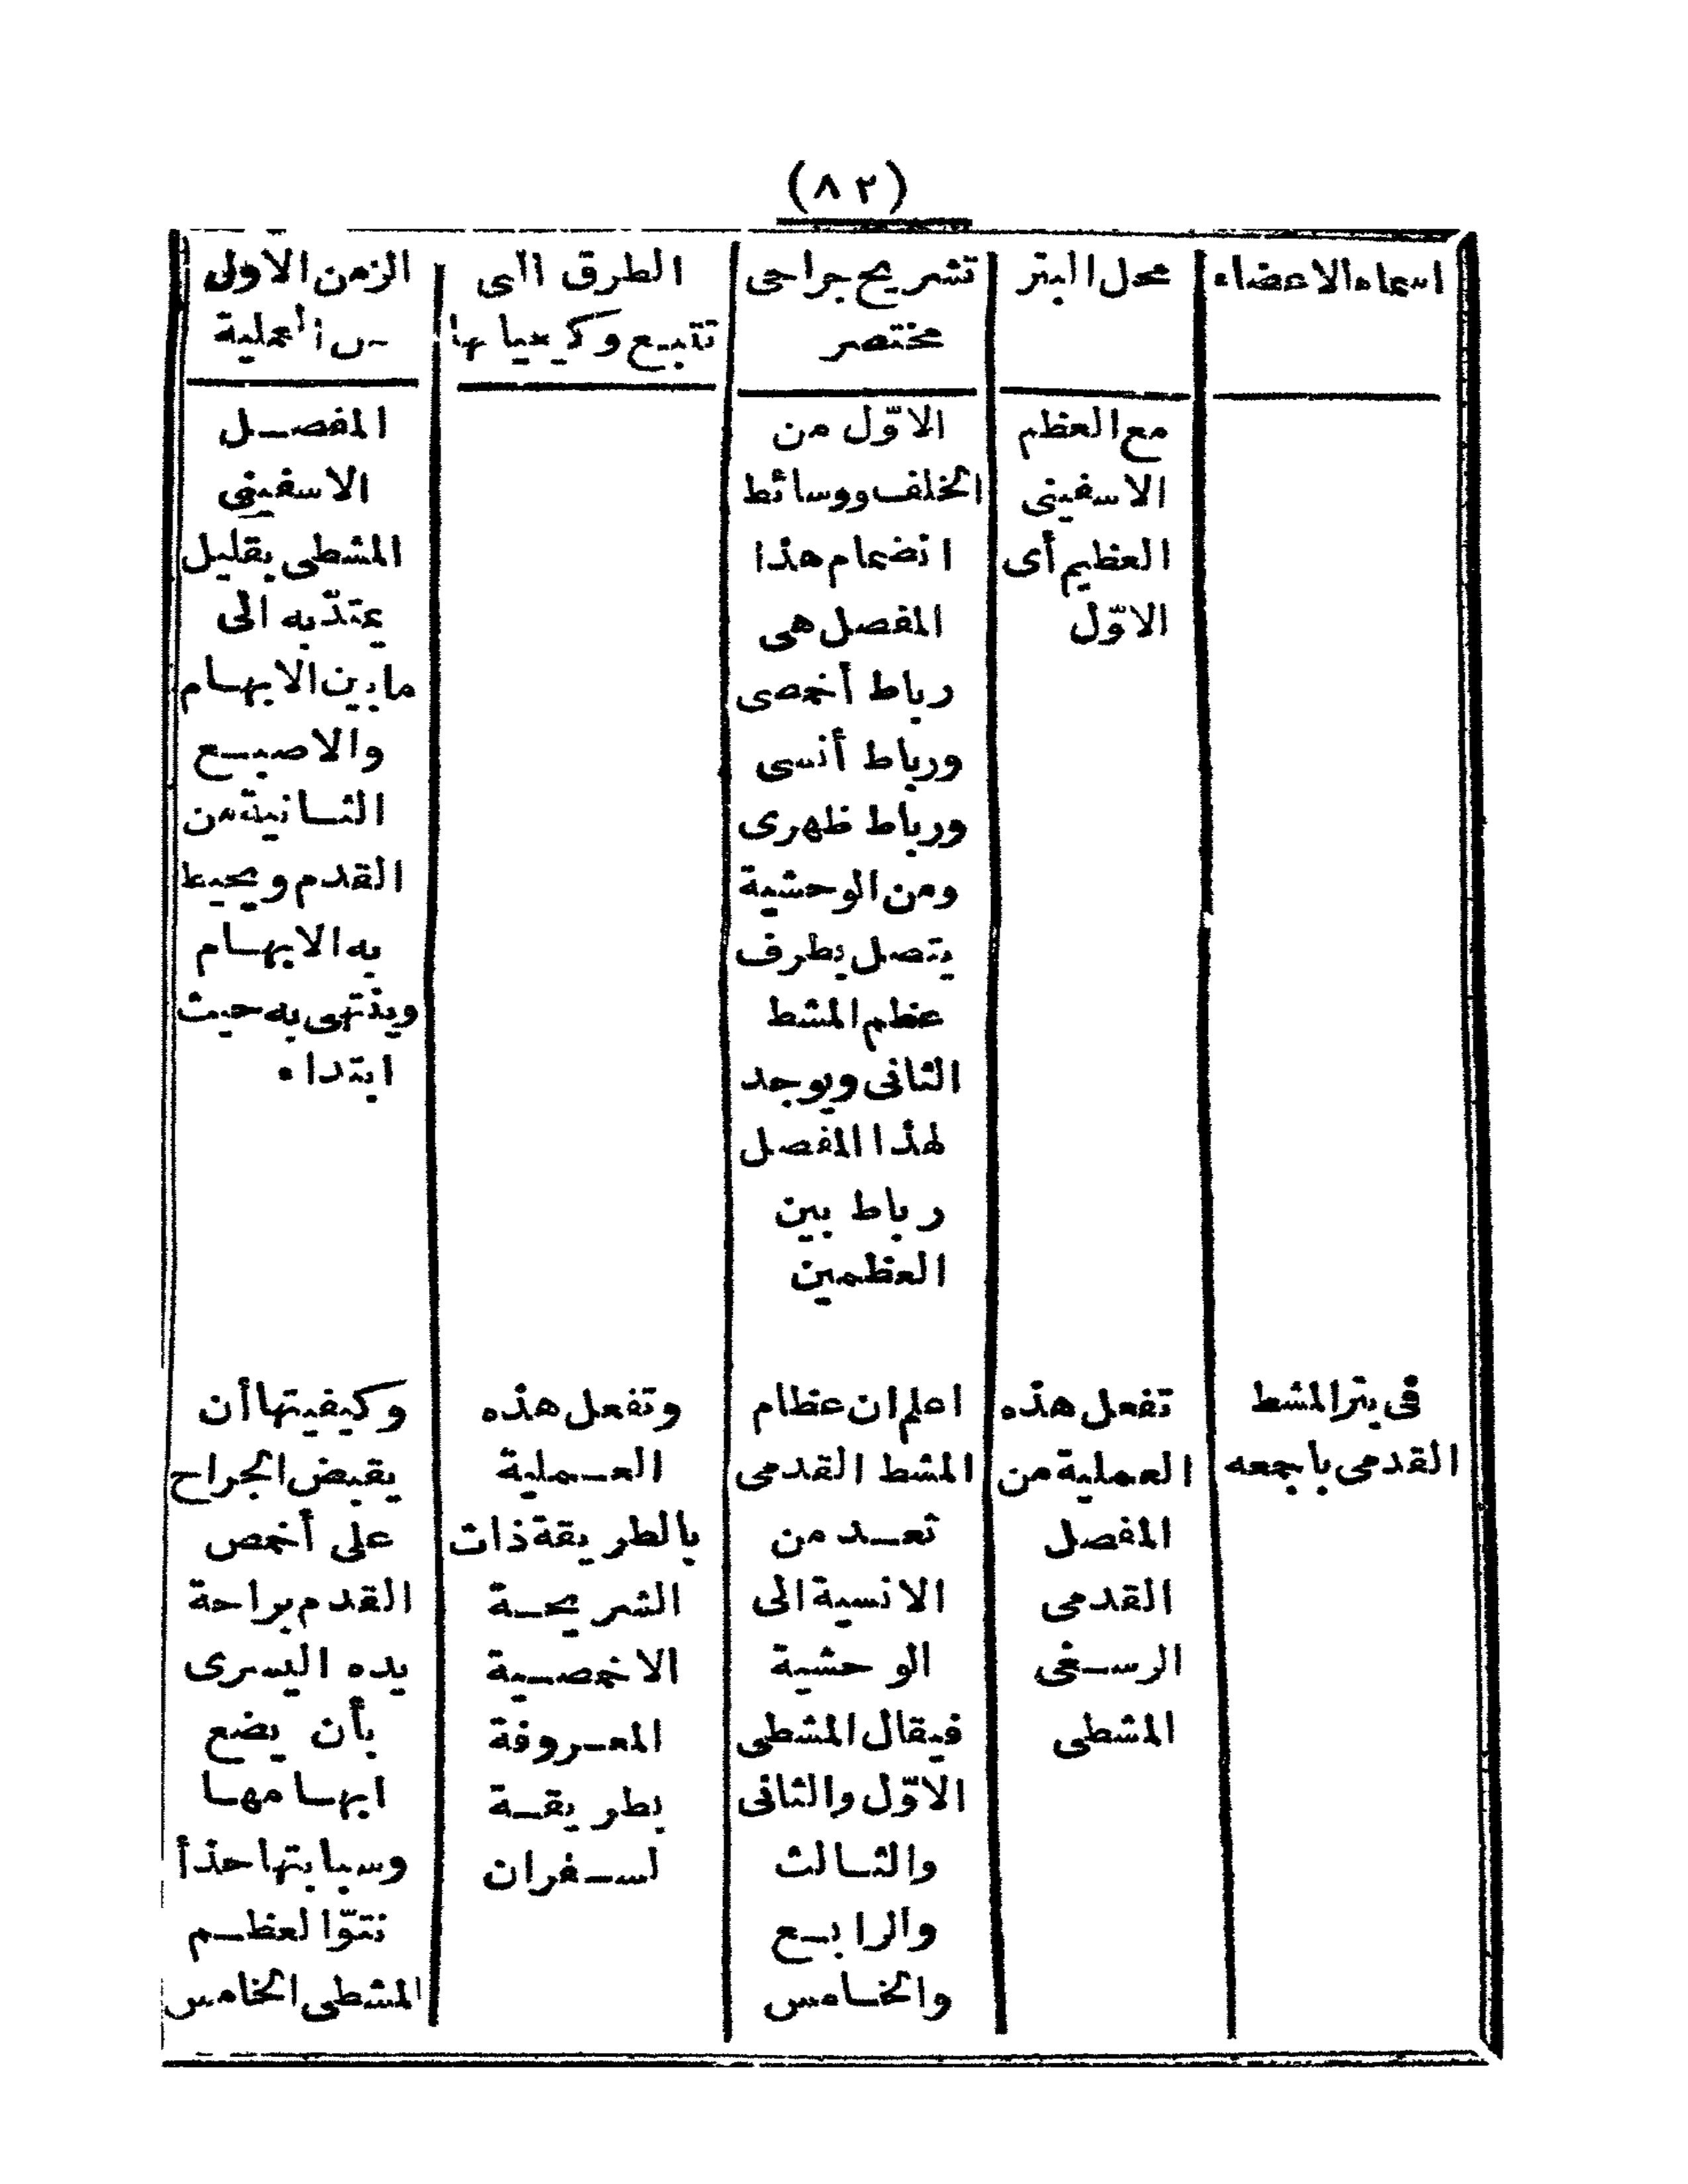 (٨٢)
اسماء الاعضاء
محل البتر
تشريح جراحى
مختصر
الطرق التى
تتبع وكيفياتها
الزمن الاول
من العملية
مع العظم
الاسفينى
العظيم أى
الاوّل
الاوّل من
الخلف ووسائط
انضمام هذا
المفصل هى
رباط أخمصى
ورباط أنسى
ورباط ظهرى
ومن الوحشية
يتصل بطرف
عظم المشط
الثانى ويوجد
لهذا المفصل
رباط بين
العظمين
المفصل
الاسفينى
المشطى بقليل
يمتدّ به الى
ما بين الابهام
والاصبع
الثانية من
القدم ويحيط
به الابهام
وينتهى به حيث
ابتداء
فى بتر المشط
القدمى باجمعه
تفعل هذه
العملية من
المفصل
القدمى
الرسغى
المشطى
اعلم ان عظام
المشط القدمى
تعد من
الانسية الى
الوحشية
فيقال المشطى
الاوّل والثانى
والثالث
والرابع
والخامس
وتفعل هذه
العملية
بالطريقة ذات
الشريحة
الاخمصية
المعروفة
بطريقة
لسفران
وكيفيتها أن
يقبض الجراح
على أخمص
القدم براحة
يده اليسرى
بأن يضع
ابهامها
وسبابتها حذأ
نتوّ العظم
المشطى الخامس